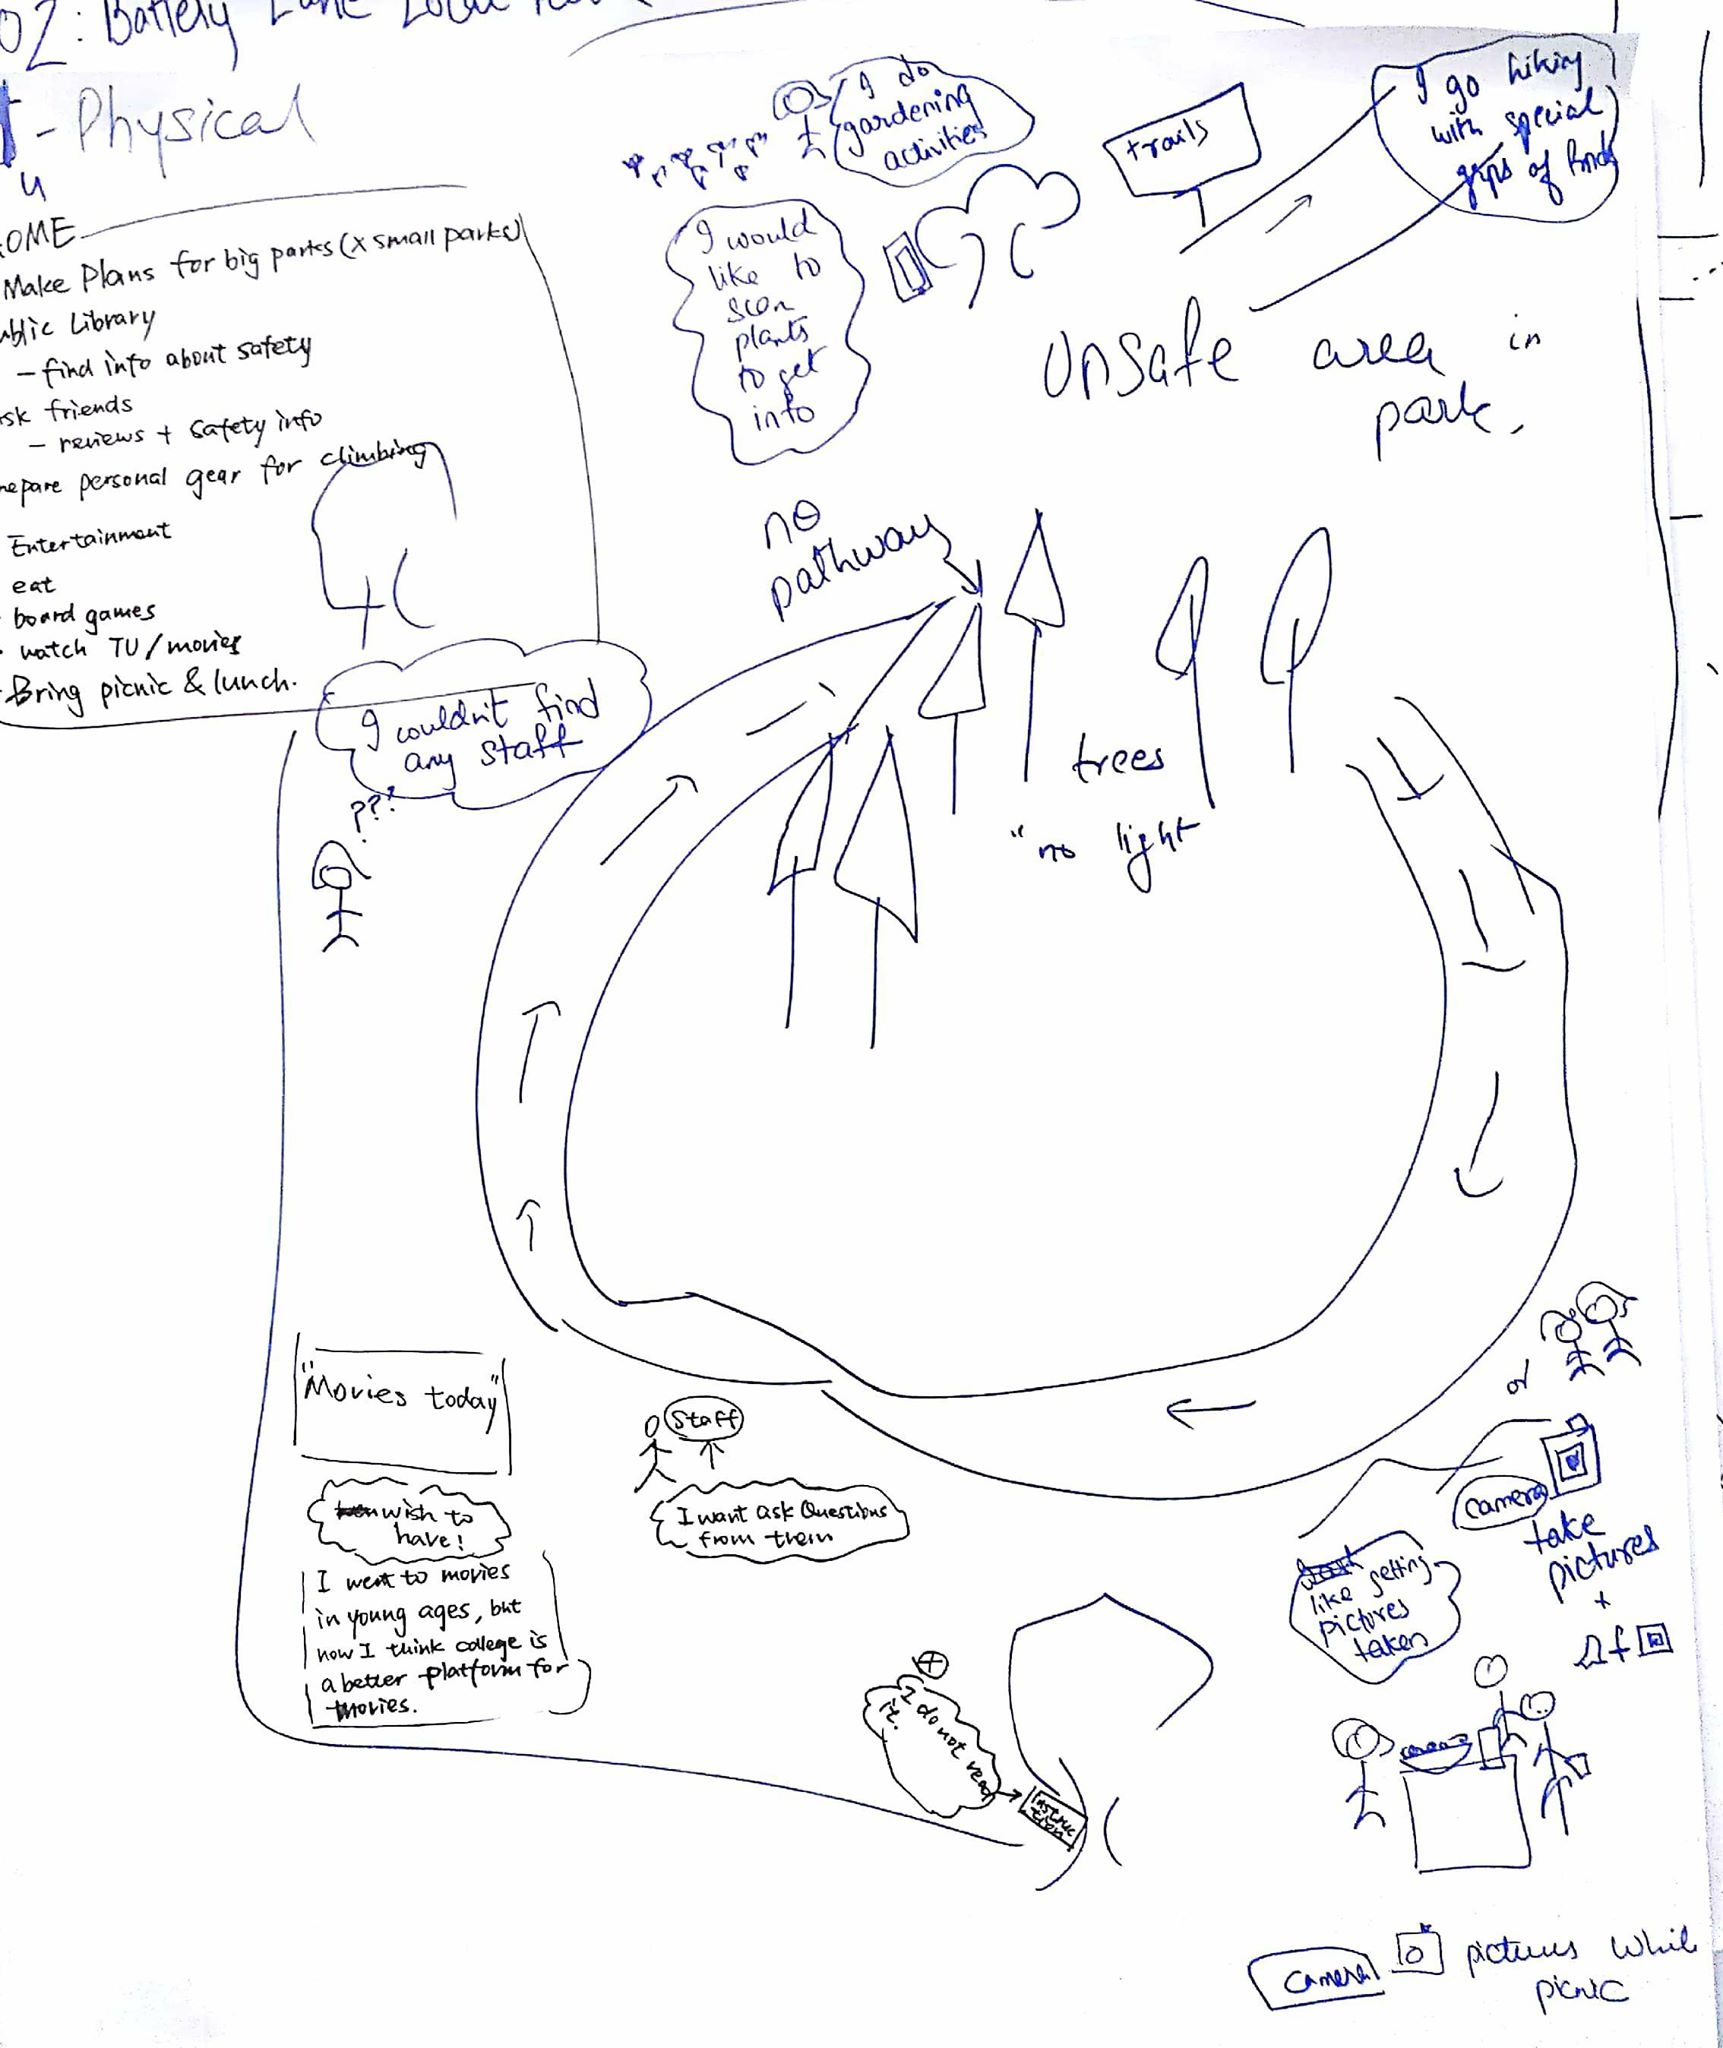 02: Battery Lane Local
- Physical
4
OME
Make Plans for big parks (x small parks)
ublic Library
- find info about safety
sk friends
- reviews + safety info
repare personal gear for climbing
Entertainment
eat
board games
watch TV/movies
Bring picnic & lunch.
I do
gardening
activities
trails
I go hiking
with special
of
I would
like to
scan
plants
to get
into
Unsafe area in
park.
no
pathway
trees
"no light
I couldn't find
any staff
???
"Movies today"
wish to
have!
I went to movies
in young ages, but
now I think college is
a better platform for
movies.
Staff
I want ask Questions
from them
I do not read
it.
Instruc
tion
or
camera
take
pictures
+
f
like getting
pictures
taken
camera
pictures while
picnic